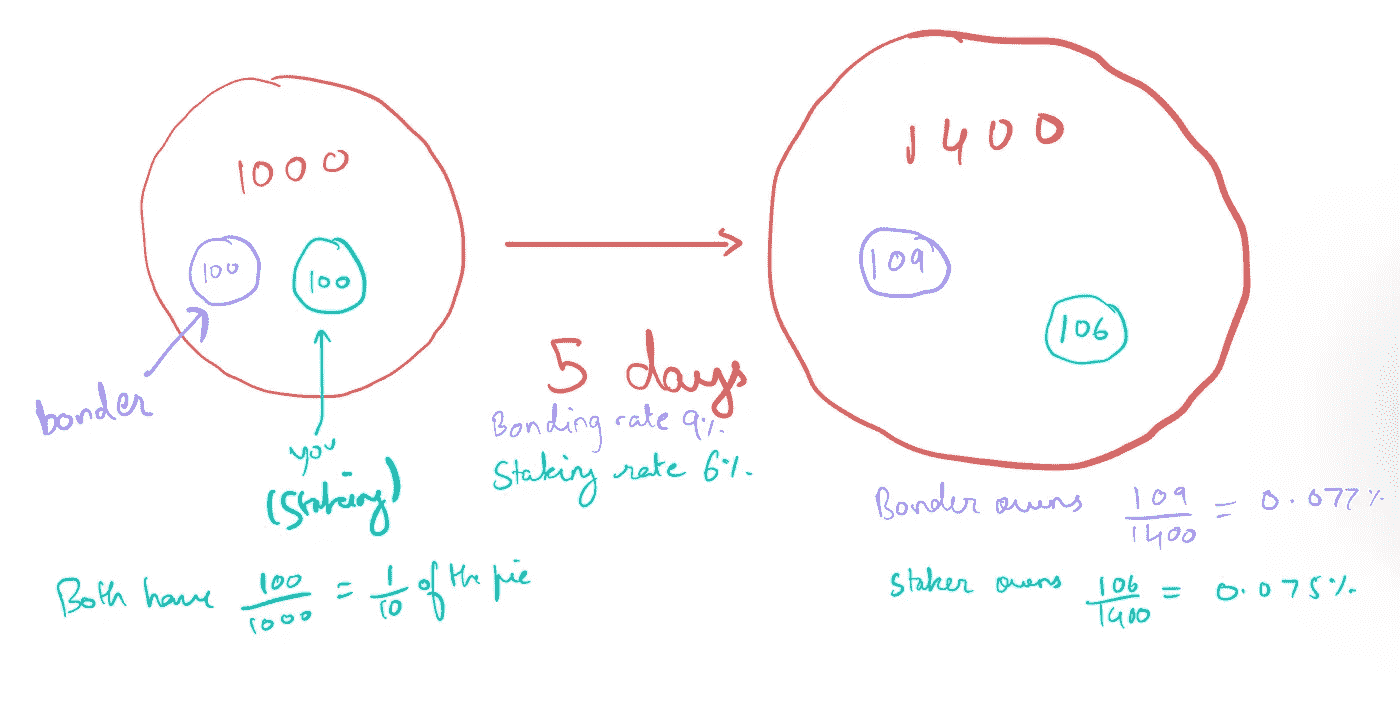 1000
100
100
bonder
you
(Staking)
Both have 100/1000 = 1/10 of the pie
5 days
Bonding rate 9%.
Staking rate 6%.
1400
109
106
Bonder owns 109/1400 = 0.077%
Staker owns 106/1400 = 0.075%